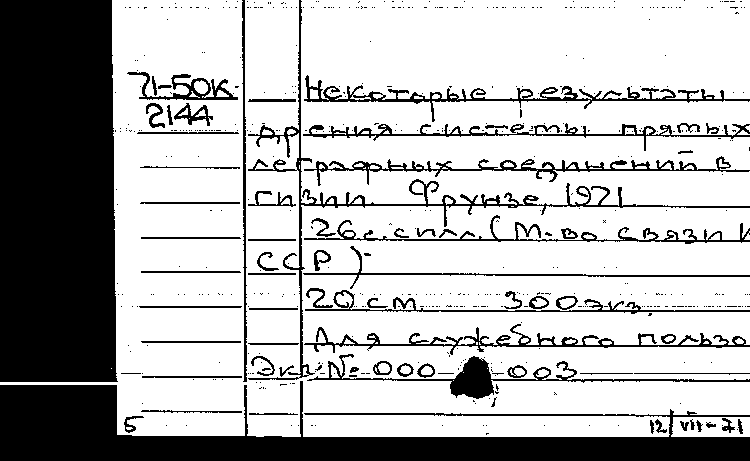 71-50К
2144
Некоторые результаты
дрения системы прямых
леграфных соединений в
гизии. Фрунзе, 1971
26 с. с илл. (М-во связи
ССР).
20 см. 300 экз.
Для служебного пользо
Экз. № 000 003
5
12/VII-71